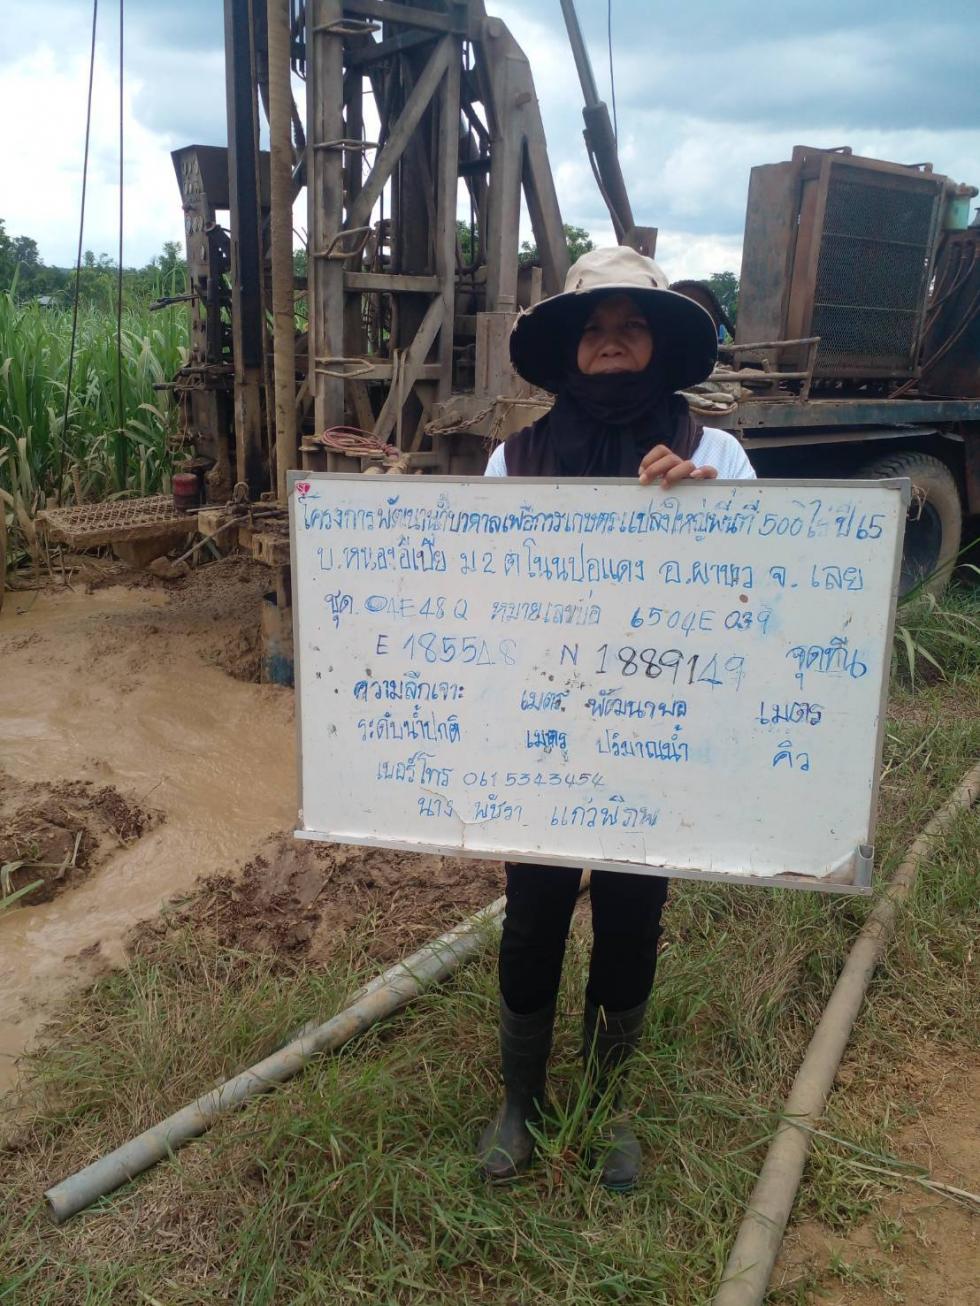 โครงการพัฒนาน้ำบาดาลเพื่อการเกษตรแปลงใหญ่พื้นที่ 500 ไร่ ปี 65
บ.หนองอีเปี้ย ม 2 ต โนนปอแดง อ.ผาขาว จ. เลย
ชุด. 04E48Q หมายเลขบ่อ 6504E039
E 185548 N 1889149 จุดที่
ความลึกเจาะ เมตร พัฒนาบ่อ เมตร
ระดับน้ำปกติ เมตร ปริมาณน้ำ คิว
เบอร์โทร 0615343454
นาง พัชรา แก้วพิภพ